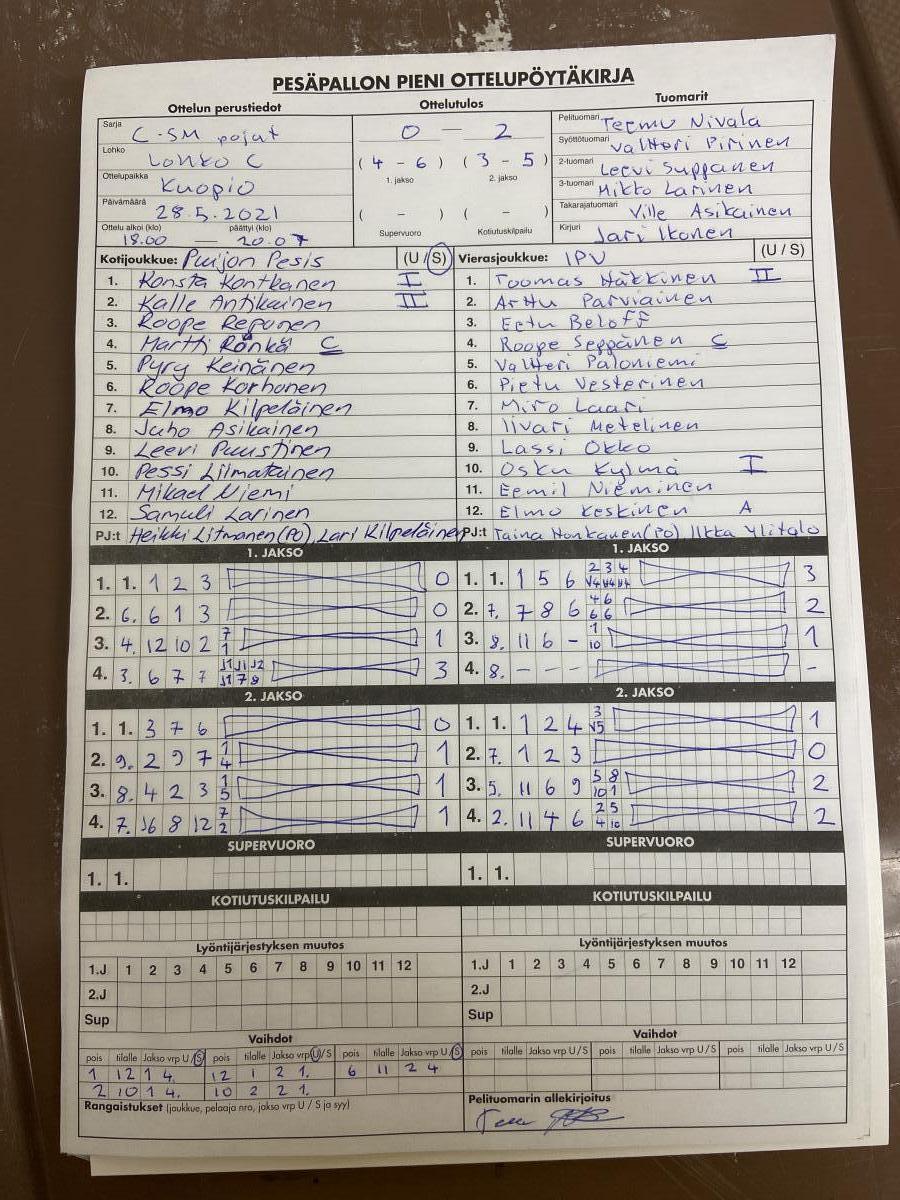 PESÄPALLON PIENI OTTELUPÖYTÄKIRJA
Ottelun perustiedot
Sarja
C-SM pojat
Lohko
Lohko C
Ottelupaikka
Kuopio
Päivämäärä
28.5.2021
Ottelu alkoi (klo) päättyi (klo)
18.00 — 20.07
Ottelutulos
0 — 2
(4 - 6) (3 - 5)
1. jakso 2. jakso
( - ) ( - )
Supervuoro Kotiutuskilpailu
Tuomarit
Pelituomari Teemu Nivala
Syöttötuomari Valtteri Pirinen
2-tuomari Leevi Suppanen
3-tuomari Mikko Larinen
Takarajatuomari Ville Asikainen
Kirjuri Jari Ikonen
Kotijoukkue: Puijon Pesis (U/S)
1. Konsta Kontkanen I
2. Kalle Antikainen II
3. Roope Reponen
4. Martti Rönkä C
5. Pyry Keinänen
6. Roope Korhonen
7. Elmo Kilpeläinen
8. Juho Asikainen
9. Leevi Puustinen
10. Pessi Lilmatainen
11. Mikael Niemi
12. Samuli Larinen
PJ:t Heikki Litmanen (PO), Lari Kilpeläinen
Vierasjoukkue: IPV (U / S)
1. Toomas Häkkinen II
2. Arttu Parviainen
3. Eetu Beloff
4. Roope Seppänen C
5. Valtteri Paloniemi
6. Pietu Vesterinen
7. Miro Laari
8. Iivari Metelinen
9. Lassi Okko
10. Osku Kylmä I
11. Eemil Nieminen
12. Elmo Keskinen A
PJ:t Taina Honkanen (PO) Ilkka Ylitalo
1. JAKSO
1. 1. 1 2 3 0
2. 6. 6 1 3 0
3. 4. 12 10 2 7 1 1
4. 3. 6 7 7 J1 J1 J2 J1 7 8 3
1. JAKSO
1. 1. 1 5 6 2 3 4 V4 V4 V4 3
2. 7. 7 8 6 4 6 6 6 2
3. 8. 11 6 - 1 10 1
4. 8. - - - -
2. JAKSO
1. 1. 3 7 6 0
2. 9. 2 9 7 1 4 1
3. 8. 4 2 3 1 5 1
4. 7. J6 8 12 7 2 1
2. JAKSO
1. 1. 1 2 4 3 V5 1
2. 7. 1 2 3 0
3. 5. 11 6 9 5 8 10 1 2
4. 2. 11 4 6 2 5 4 10 2
SUPERVUORO
1. 1.
SUPERVUORO
1. 1.
KOTIUTUSKILPAILU
KOTIUTUSKILPAILU
Lyöntijärjestyksen muutos
1.J 1 2 3 4 5 6 7 8 9 10 11 12
2.J
Sup
Lyöntijärjestyksen muutos
1.J 1 2 3 4 5 6 7 8 9 10 11 12
2.J
Sup
Vaihdot
pois tilalle Jakso vrp U/S pois tilalle Jakso vrp U/S pois tilalle Jakso vrp U/S
1 12 1 4. 12 1 2 1. 6 11 2 4
2 10 1 4. 10 2 2 1.
Rangaistukset (joukkue, pelaaja nro, jakso vrp U / S ja syy)
Vaihdot
pois tilalle Jakso vrp U/S pois tilalle Jakso vrp U/S pois tilalle Jakso vrp U/S
Pelituomarin allekirjoitus